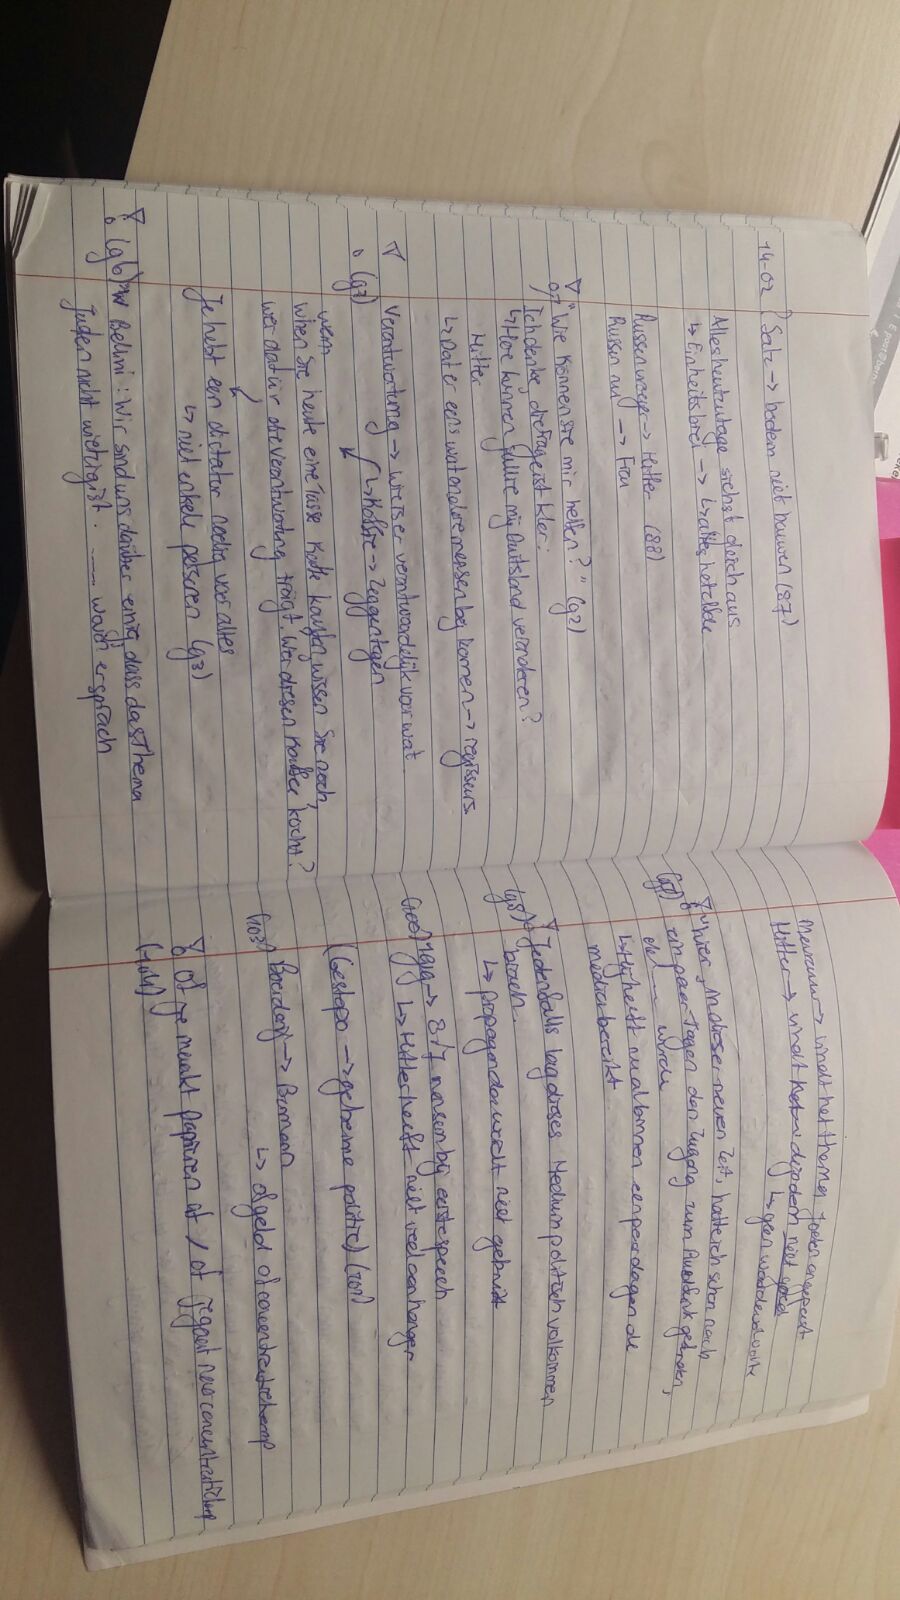 14-02 Satz → bodem niet bouwen (87)
Alles heutzutage siehst gleich aus
↳ Einheitsbrei → ↳ alles hetzelfde
Russen vroeger → Hitler (88)
Russen nu → Frau
"Wie können sie mir helfen?" (92)
Ich denke, die Frage ist kler:
↳ Hoe kunnen jullie mij Duitsland veranderen?
Hitler
↳ Dat er eens wat andere mensen bij komen → regisseurs
Verantwortung → wie is er verantwoordelijk voor wat
(93) ↳ Koffie → Zeggen tegen
wenn
when Sie heute eine Tasse Kaffe kaufen, wissen Sie noch,
wer dafür die verantwortung trägt. Wer diesen Kaffee kocht?
Je hebt een dictator nodig voor alles
↳ niet enkele personen (93)
(96) Bellini: Wir sind uns darüber einig, dass das Thema
Juden nicht witzig ist. ...... wovon er sprach
Mevrouw → vindt het thema Joden ongepast
Hitler → vindt Joden niet goed
↳ geen
(97) "hier, in dieser neuen Zeit, hatte ich schon nach
ein paar Tagen den Zugang zum Rundfunk gefunden,
de ...... wurde
↳ Hij heeft nu al binnen een paar dagen de
media bereikt
(98) Jedenfalls lag dieses Medium politisch volkommen
brach.
↳ propaganda wordt niet gebruikt
(100) 1919 → 8/7 mensen bij eerste speech
↳ Hitler heeft niet veel aanhanger
(Gestapo → geheime politie) (101)
(103) → Bormann
↳ of geld of concentratiekamp
of je maakt papieren af / of je gaat naar concentratiekamp
(104)